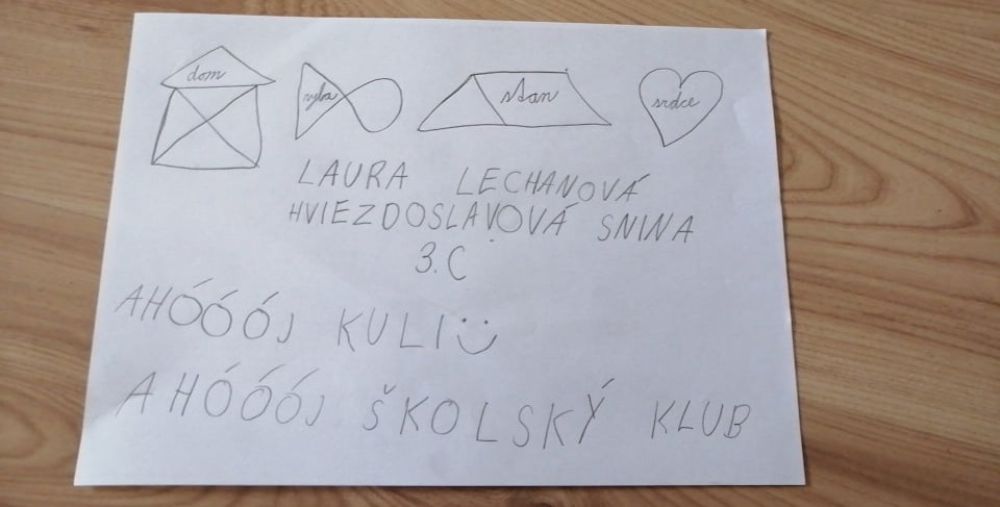 dom ryba stan srdce
LAURA LECHANOVÁ
HVIEZDOSLAVOVÁ SNINA
3.C
AHÓÓÓJ KULI
AHÓÓÓJ ŠKOLSKÝ KLUB